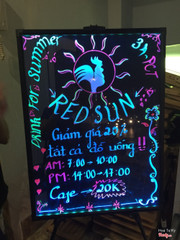 DRINK FOR Summer
RED SUN
Giảm giá 20%
tất cả đồ uống !!
AM: 7:00 - 10:00
PM: 14:00 - 17:00
Cafe 20K